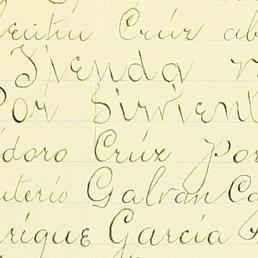 lentin Cruz ab
Tienda
Por Sirvient
doro Cruz Por
uterio Galvan Ca
nrique Garcia